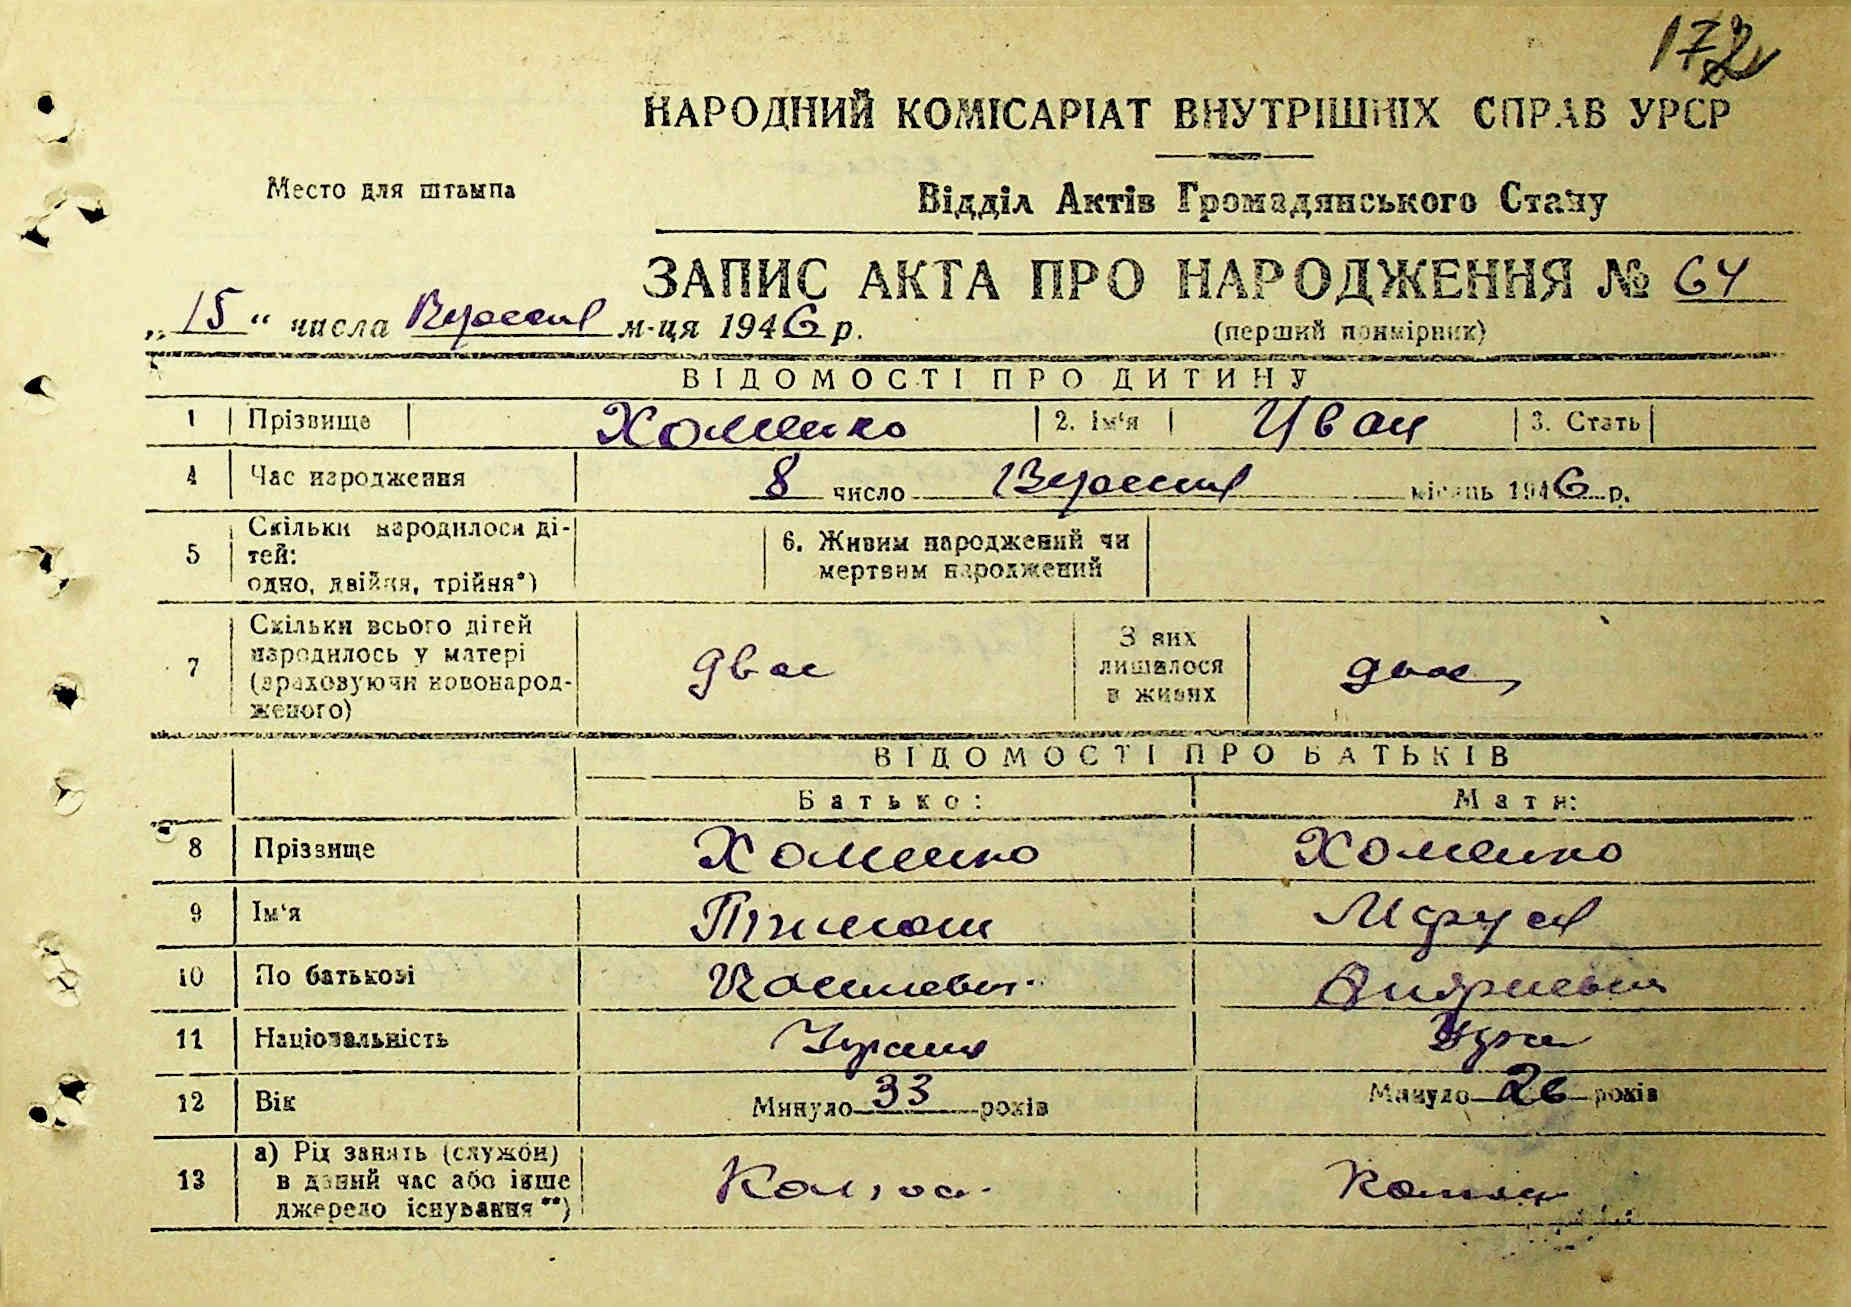 172
НАРОДНИЙ КОМІСАРІАТ ВНУТРІШНІХ СПРАВ УРСР
Место для штампа
Відділ Актів Громадянського Стану
ЗАПИС АКТА ПРО НАРОДЖЕННЯ № 64
„15“ числа Вересня м-ця 1946 р.
(перший примірник)
ВІДОМОСТІ ПРО ДИТИНУ
1 Прізвище Хоменко 2. Ім'я Иван 3. Стать
4 Час народження 8 число Вересня місяць 1946 р.
5 Скільки народилося ді-
тей:
одно, двійня, трійня*)
6. Живим народжений чи
мертвим народжений
7 Скільки всього дітей
народилось у матері
(враховуючи новонарод-
женого)
двое
З них
лишилося
в живих
двое
ВІДОМОСТІ ПРО БАТЬКІВ
Батько: Мати:
8 Прізвище Хоменко Хоменко
9 Ім'я Тимош Маруся
10 По батькові
11 Національність Украин Укра
12 Вік Минуло 33 років Минуло 26 років
13 а) Рід занять (служби)
в даний час або інше
джерело існування**)